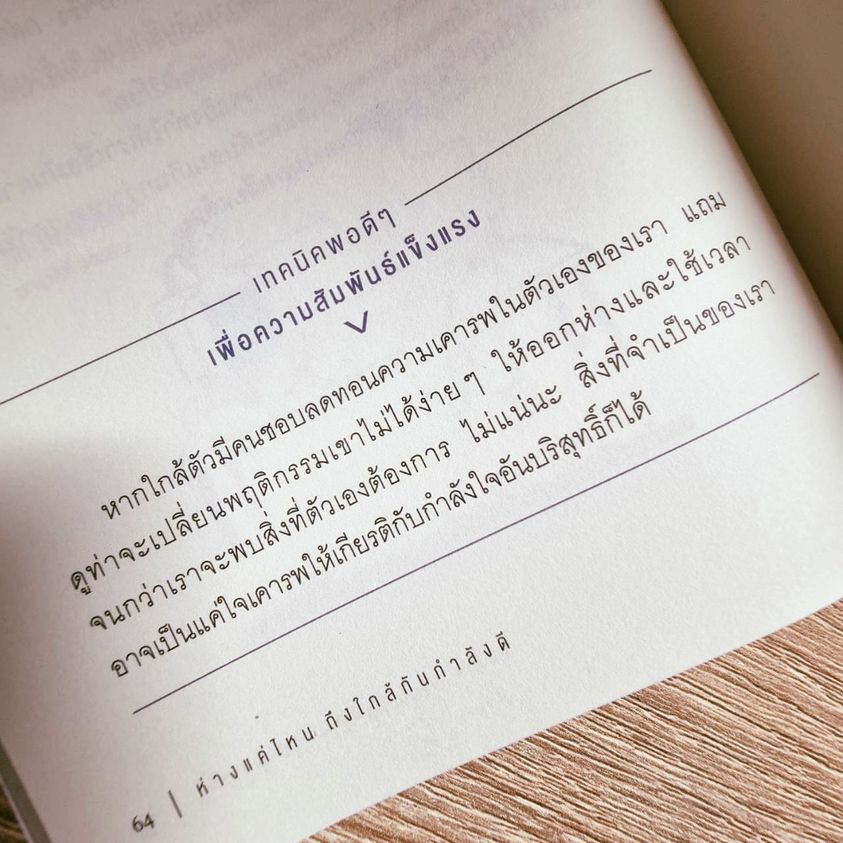 เทคนิคพอดีๆ
เพื่อความสัมพันธ์แข็งแรง
หากใกล้ตัวมีคนชอบลดทอนความเคารพในตัวเองของเรา แถม
ดูท่าจะเปลี่ยนพฤติกรรมเขาไม่ได้ง่ายๆ ให้ออกห่างและใช้เวลา
จนกว่าเราจะพบสิ่งที่ตัวเองต้องการ ไม่แน่นะ สิ่งที่จำเป็นของเรา
อาจเป็นแค่ใจเคารพให้เกียรติกับกำลังใจอันบริสุทธิ์ก็ได้
64 | ห่างแค่ไหน ถึงใกล้กันกำลังดี